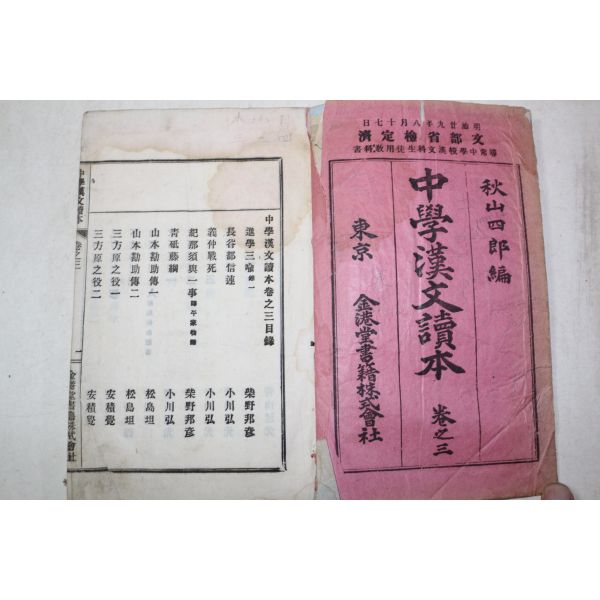 明治廿九年八月十七日
文部省檢定濟
尋常中學校漢文科生徒用敎科書
秋山四郎編
中學漢文讀本 卷之三
東京 金港堂書籍株式會社
中學漢文讀本卷之三目錄
進學三喩 錄一 柴野邦彥
長谷部信連 小川弘
義仲戰死 小川弘
紀那須與一事 譯平家物語 柴野邦彥
靑砥藤綱 小川弘
山本勘助傳一 松島坦
山本勘助傳二 松島坦
三方原之役一 安積覺
三方原之役二 安積覺
中學漢文讀本 卷之三 一 金港堂書籍株式會社